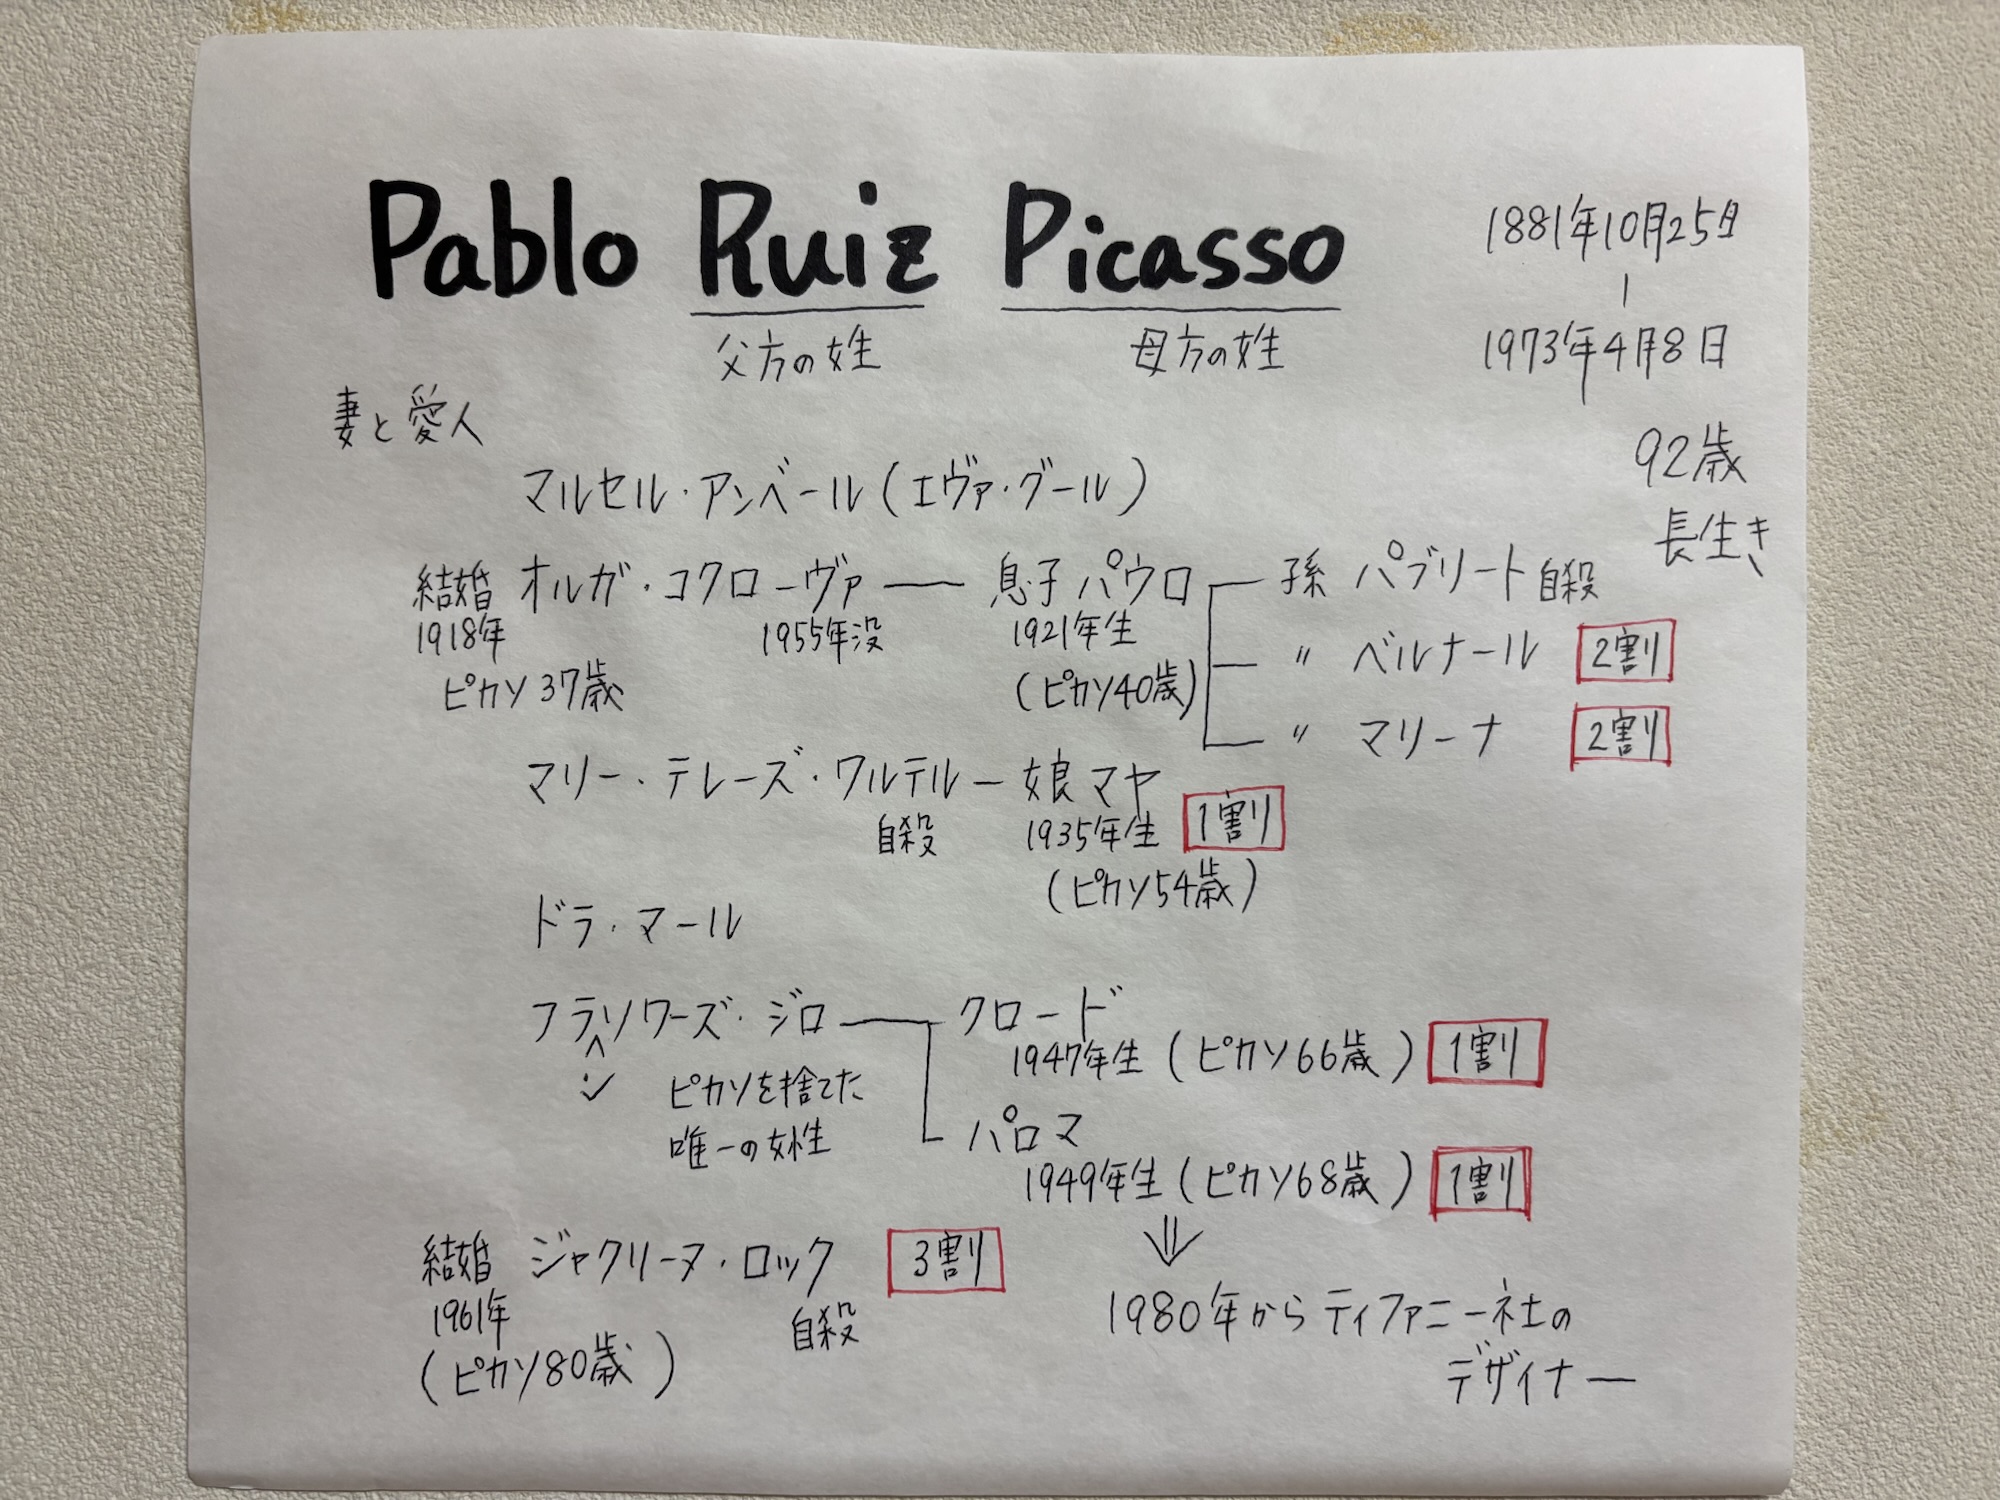 Pablo Ruiz Picasso
父方の姓 母方の姓
1881年10月25日
|
1973年4月8日
92歳
長生き
妻と愛人
マルセル・アンベール(エヴァ・グール)
結婚 オルガ・コクローヴァ — 息子 パウロ — 孫 パブリート 自殺
1918年 1955年没 1921年生
ピカソ37歳 (ピカソ40歳)
〃 ベルナール 2割
〃 マリーナ 2割
マリー・テレーズ・ワルテル — 娘 マヤ
自殺 1935年生 1割
(ピカソ54歳)
ドラ・マール
フランソワーズ・ジロ — クロード
1947年生(ピカソ66歳) 1割
ピカソを捨てた
唯一の女性
パロマ
1949年生(ピカソ68歳) 1割
⇓
1980年からティファニー社の
デザイナー
結婚 ジャクリーヌ・ロック 3割
1961年 自殺
(ピカソ80歳)